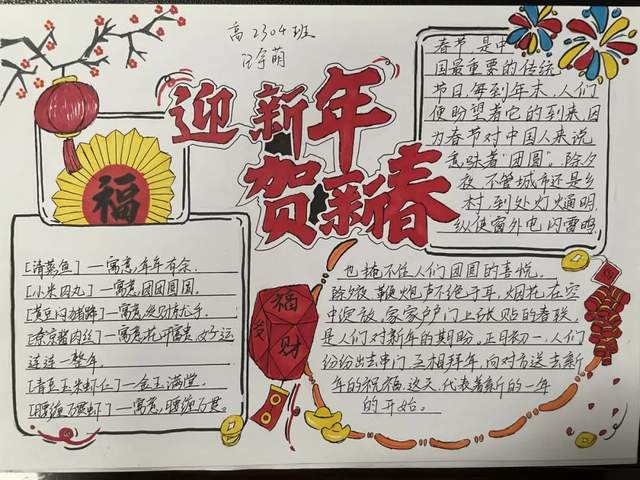 高2304班
迎新年
贺新春
春节,是中
国最重要的传统
节日,每到年末,人们
便盼望着它的到来,因
为春节对中国人来说
意味着“团圆”。除夕
夜,不管城市还是乡
村,到处灯火通明,
纵使窗外电闪雷鸣,
也掩不住人们团圆的喜悦。
除夕夜,鞭炮声不绝于耳,烟花在空
中绽放,家家户户门上张贴的春联,
是人们对新年的期盼,正月初一,人们
纷纷出去串门,互相拜年,向对方送去新
年的祝福,这天,代表着新的一年
的开始。
福
[清蒸鱼]—寓意,年年有余.
[小米肉丸]—寓意,团团圆圆.
[黄豆闷猪蹄]—寓意,发财就手.
[京酱肉丝]—寓意,花开富贵,好运
连连一整年.
[青豆玉米虾仁]—金玉满堂.
[腰缠万贯虾]—寓意,腰缠万贯.
福
发财